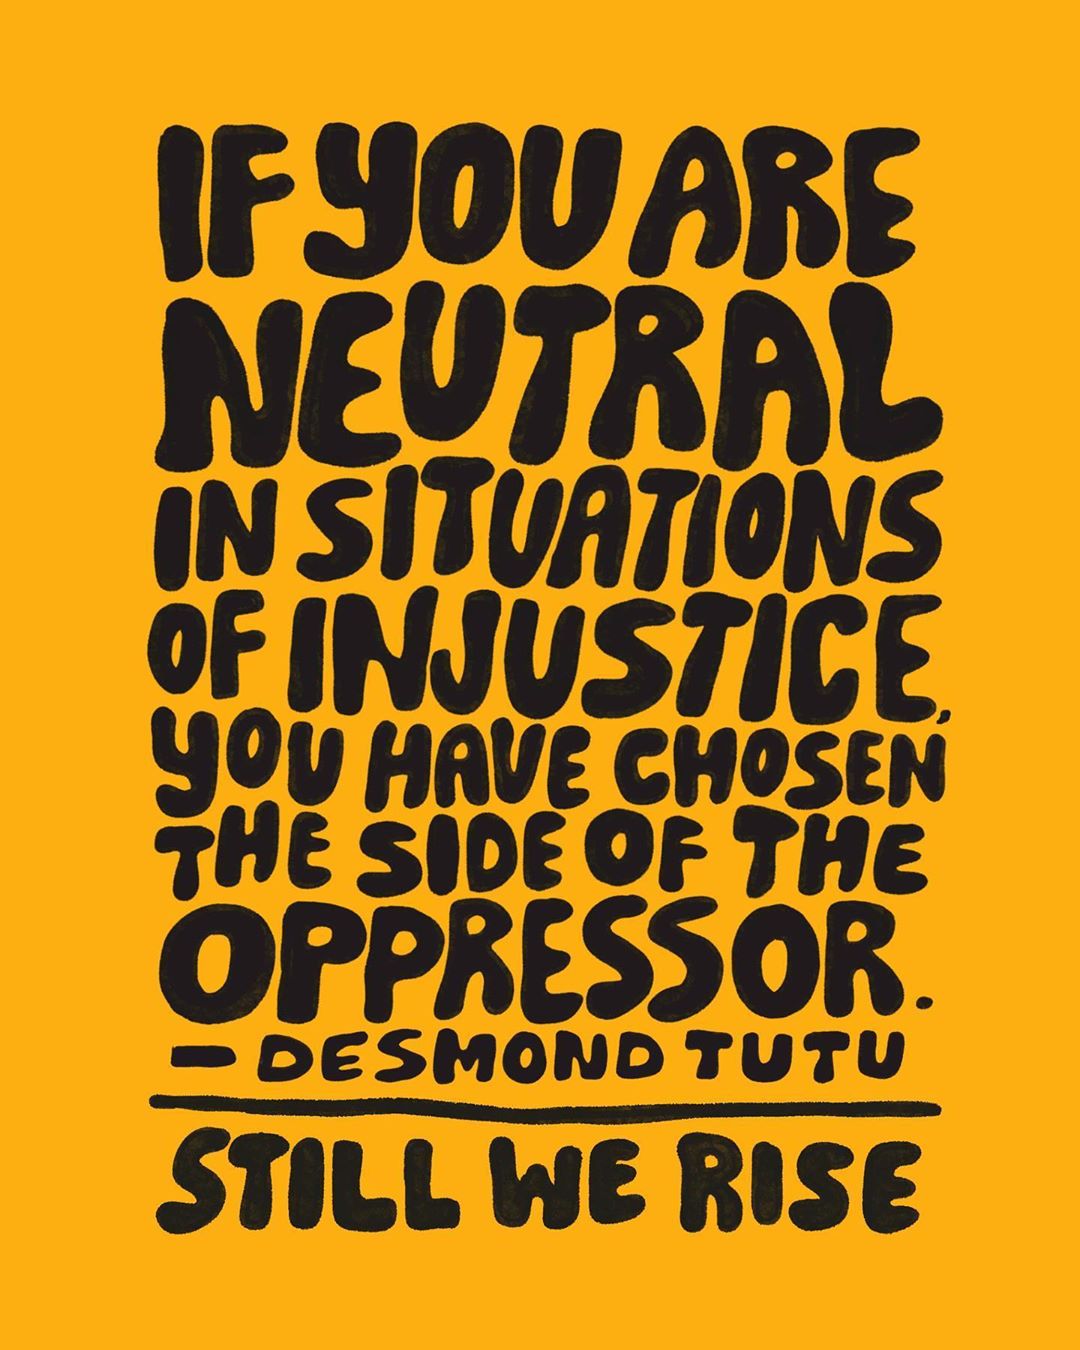 IF YOU ARE
NEUTRAL
IN SITUATIONS
OF INJUSTICE,
YOU HAVE CHOSEN
THE SIDE OF THE
OPPRESSOR.
– DESMOND TUTU
STILL WE RISE